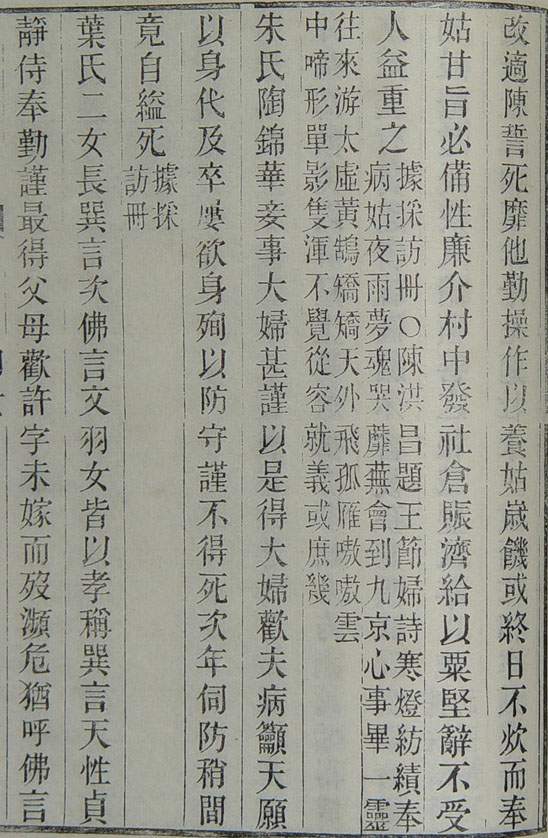 改適陳誓死靡他勤操作以養姑歲饑或終日不炊而奉
姑甘旨必備性廉介村中發社倉賑濟給以粟堅辭不受
人益重之
據採訪冊○陳洪昌題王節婦詩寒燈紡績奉
病姑夜雨夢魂哭蘼蕪會到九京心事畢一靈
往來游太虛黃鵠矯矯天外飛孤雁嗷嗷雲
中啼形單影隻渾不覺從容就義或庶幾
朱氏陶錦華妾事大婦甚謹以是得大婦歡夫病籲天願
以身代及卒屢欲身殉以防守謹不得死次年伺防稍間
竟自縊死
據採
訪冊
葉氏二女長巽言次佛言文羽女皆以孝稱巽言天性貞
靜侍奉勤謹最得父母歡許字未嫁而歿瀕危猶呼佛言